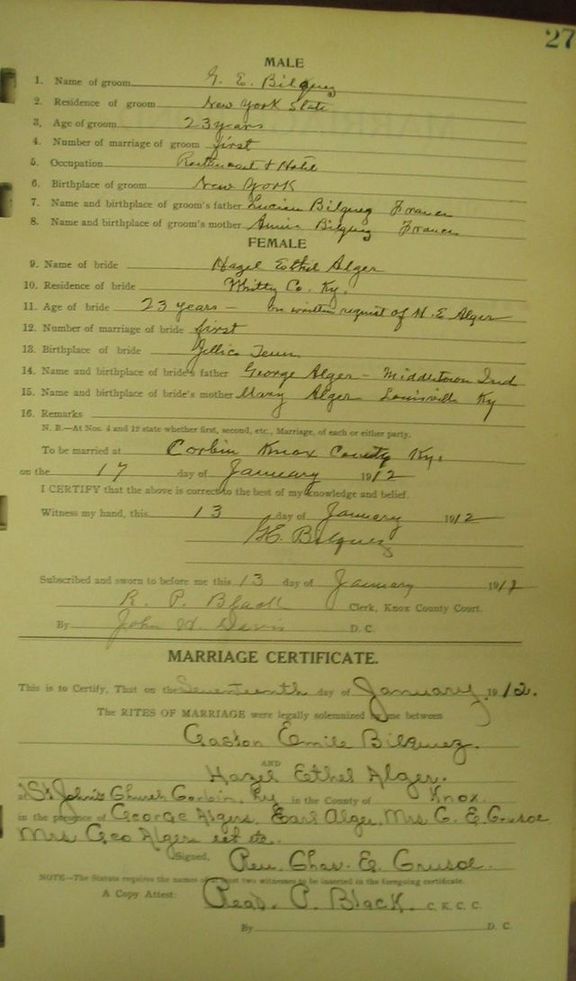 27
MALE
1. Name of groom G. E. Bilquez
2. Residence of groom New York State
3. Age of groom 23 years
4. Number of marriage of groom first
5. Occupation Restaurant & Hotel
6. Birthplace of groom New York
7. Name and birthplace of groom's father Lucien Bilquez France
8. Name and birthplace of groom's mother Annie Bilquez France
FEMALE
9. Name of bride Hazel Ethel Alger
10. Residence of bride Whitly Co. Ky.
11. Age of bride 23 years — on written request of H. E Alger
12. Number of marriage of bride first
13. Birthplace of bride Jellico Tenn
14. Name and birthplace of bride's father George Alger - Middletown Ind
15. Name and birthplace of bride's mother Mary Alger Louisville Ky
16. Remarks
N. B.—At Nos. 4 and 12 state whether first, second, etc., Marriage, of each or either party.
To be married at Corbin Knox County Ky.
on the 17 day of January 1912
I CERTIFY that the above is correct to the best of my knowledge and belief.
Witness my hand, this 13 day of January 1912
G. E. Bilquez
Subscribed and sworn to before me this 13 day of January 1912
R. P. Black Clerk, Knox County Court.
By John H. Davis D. C.
MARRIAGE CERTIFICATE.
This is to Certify, That on the Seventeenth day of January, 1912.
The RITES OF MARRIAGE were legally solemnized by me between
Gaston Emile Bilquez.
AND
Hazel Ethel Alger.
at St John's Church Corbin, Ky in the County of Knox.
in the presence of George Algers, Earl Alger, Mrs C. E. Crusoe
Mrs Geo Algers ect etc.
Signed, Rev. Chas. E. Crusoe.
NOTE—The Statute requires the names of at least two witnesses to be inserted in the foregoing certificate.
A Copy Attest: Read. P. Black. C. K. C. C.
By D. C.